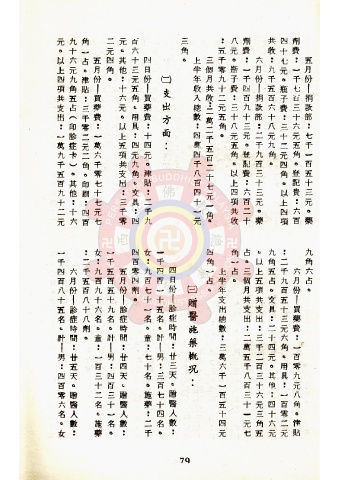 五月份—捐款部：七千一百五十三元。藥
劑費：一千七百三十六元五角。登記費：六百
四十七元。瓶子費：三十二元四角。以上四項
共收：九千五百六十八元九角。
六月份—捐款部：二千九百三十三元。藥
劑費：一千四百九十三元。登記費：六百二十
八元。瓶子費：三十八元五角。以上四項共收
：五千零九十二元五角。
三個月共收：二萬二千五百二十七元一角。
上學年收入總數：四萬四千八百四十一元
三角。
㈡支出方面：
四日份—買藥費：一十四元。津貼：二千九
百六十三元五角。用具：四元九角。文具：四
元。其他：十六元。以上四項共支出：三千零
二元四角。
五月份—買藥費：一萬六千零七十七元七
角一占。津貼：三千零二元二角。印刷：四百
九十六元九角五占（印診症卡）。其他：十六
元。以上四項共支出：一萬九千五百九十二元
九角六占。
六月份—買藥費：一百零九元八角。津貼
：二千六百五十三元六角。用具：一百零二元
。文具：二十四元。其他：四十六元三角五
。以上五項共支出：三千二百三十六元三角五
占。三個月共支出：二萬五千八百三十一元七
角一占。
上半年支出總數：三萬六千一百五十四元
四角一占。
㈢贈醫施藥概況：
四月份—診症時間：廿三天。贈醫人數：
一千四百二十五名。計—男：三百七十四名。
女：九百七十一名。童：七十名。施藥：二千
一百四十四劑。
五月份—診症時間：廿四天。贈醫人數：
一千五百四十九名。計—男：四百三十一名。
女：九百八十六名。童：一百三十二名。施藥
：二千五百八十八劑。
六月份—診症時間：廿五天。贈醫人數：
一千四百八十五名。計—男：四百零六名。女
79